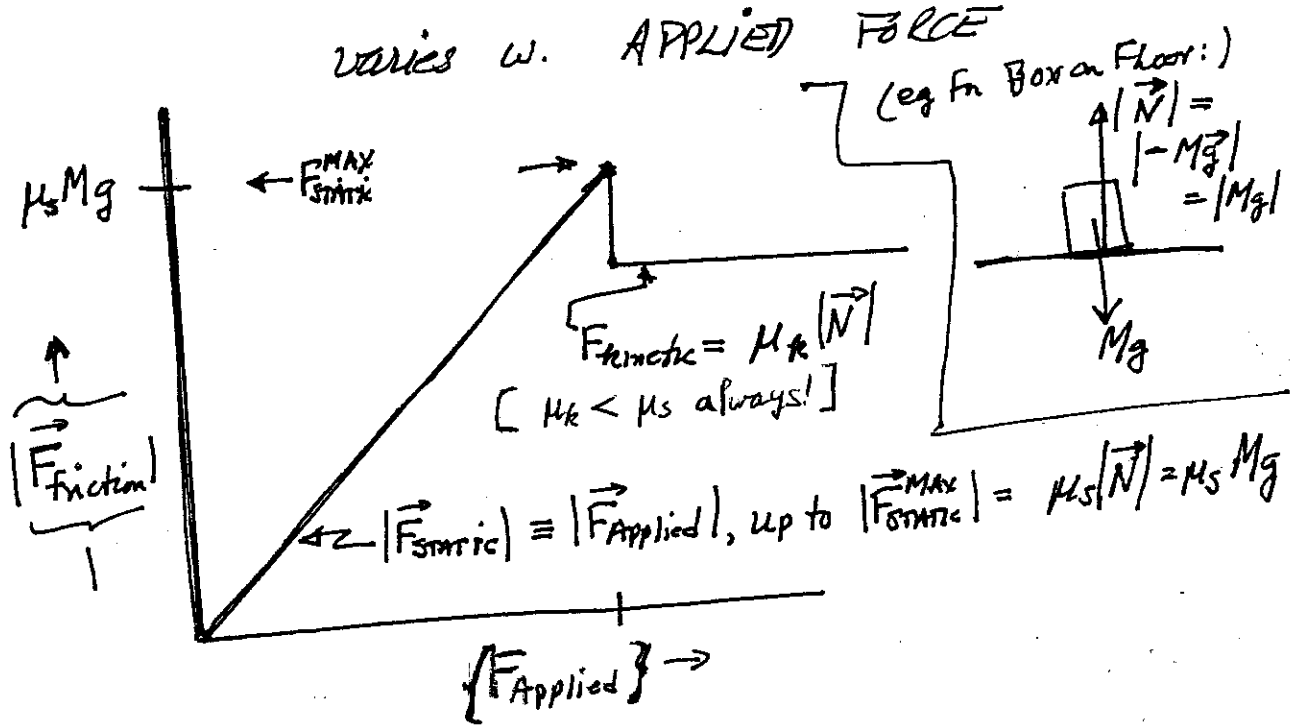 varies w. APPLIED FORCE
(eg Fn Box on Floor:)
|N⃗| =
|-Mg⃗|
= |Mg|
Mg
μₛMg
← F_STATIC^MAX →
F_kinetic = μₖ|N⃗|
[ μₖ < μₛ always! ]
|F⃗_friction|
|F⃗_STATIC| ≡ |F⃗_Applied|, up to |F⃗_STATIC^MAX| = μₛ|N⃗| = μₛ Mg
{F_Applied} →